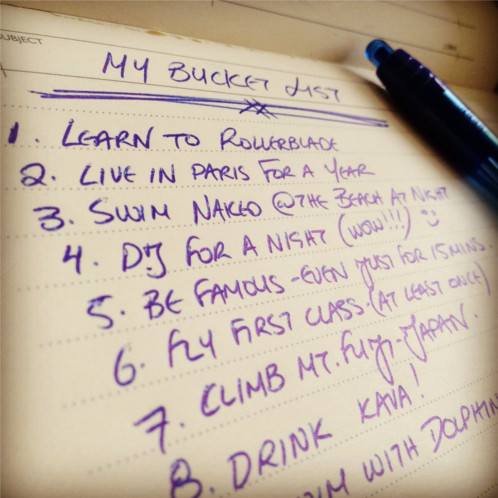 SUBJECT
MY BUCKET LIST
1. LEARN TO ROLLERBLADE
2. LIVE IN PARIS FOR A YEAR
3. SWIM NAKED @ THE BEACH AT NIGHT
4. DJ FOR A NIGHT (WOW!!!)
5. BE FAMOUS - EVEN JUST FOR 15 MINS
6. FLY FIRST CLASS (AT LEAST ONCE)
7. CLIMB MT. FUJI - JAPAN.
8. DRINK KAVA!
WITH DOLPHIN